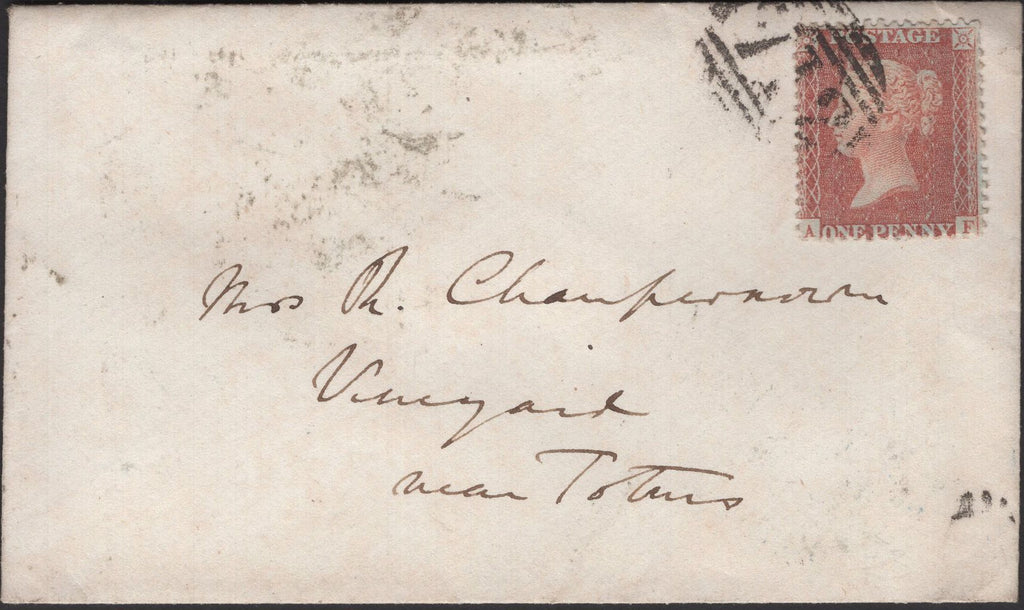 POSTAGE
A ONE PENNY F
Mrs R. Champernown
Vineyard
near Totnes